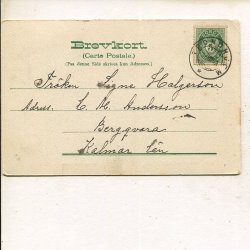 Brevkort
(Carte Postale.)
(Paa denne Side skrives kun Adressen.)
Fröken Signe Halgerson
Adres. C. M. Andersson
Berggvara
Kalmar Län